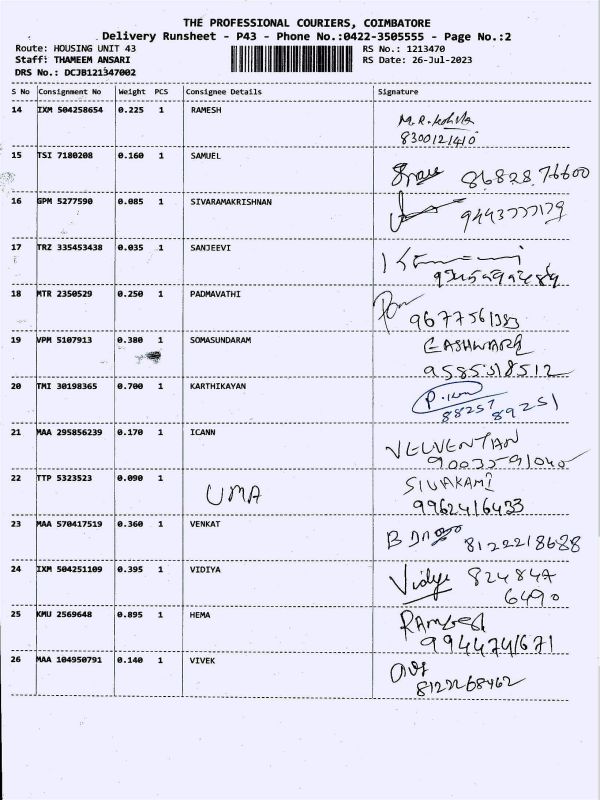 THE PROFESSIONAL COURIERS, COIMBATORE
Delivery Runsheet - P43 - Phone No.:0422-3505555 - Page No.:2
Route: HOUSING UNIT 43 RS No.: 1213470
Staff: THAMEEM ANSARI RS Date: 26-Jul-2023
DRS No.: DCJB121347002
S No Consignment No Weight PCS Consignee Details Signature
14 IXM 504258654 0.225 1 RAMESH
8300121410
15 TSI 7180208 0.160 1 SAMUEL
86828 76600
16 GPM 5277590 0.085 1 SIVARAMAKRISHNAN
17 TRZ 335453438 0.035 1 SANJEEVI
18 MTR 2350529 0.250 1 PADMAVATHI
9677561383
19 VPM 5107913 0.380 1 SOMASUNDARAM EASHWARE
9585518512
20 TMI 30198365 0.700 1 KARTHIKAYAN
88257 89251
21 MAA 295856239 0.170 1 ICANN VELVENTIAN
9003591045
22 TTP 5323523 0.090 1 UMA SIVAKAMI
9962416433
23 MAA 570417519 0.360 1 VENKAT
8122218688
24 IXM 504251109 0.395 1 VIDIYA Vidya 824847
6490
25 KMU 2569648 0.895 1 HEMA Ramesh
9944741671
26 MAA 104950791 0.140 1 VIVEK
8122268462